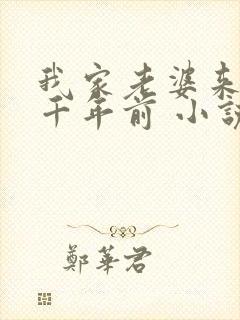 我家老婆来
千年前 小説
鄭華君